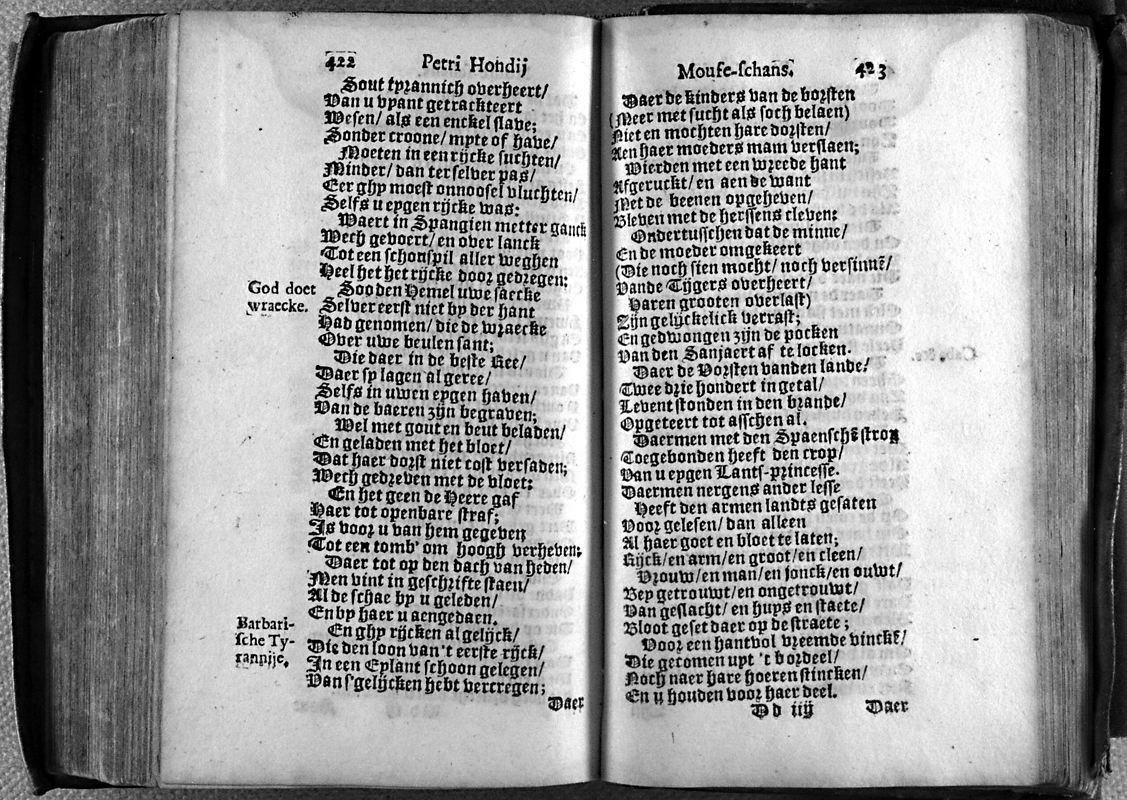 422 Petri Hondij
Sout tyrannich overheert/
Van u vyant getrackteert
Wesen/ als een enckel slave;
Sonder croone/ myte of have/
Moeten in een rijcke suchten/
Minder/ dan ter selver pas/
Eer ghy moest onnoosel vluchten/
Selfs u eygen rijcke was:
Waert in Spangien metter ganck
Wech gevoert/ en over lanck
Tot een schouspil aller weghen
Heel het het rijcke door gedregen;
God doet
wraecke.
Soo den Hemel uwe saecke
Selver eerst niet by der hant
Had genomen/ die de wraecke
Over uwe beulen sant;
Die daer in de beste Ree/
Daer sy lagen al geree/
Selfs in uwen eygen haven/
Van de baeren zijn begraven;
Wel met gout en beut beladen/
En geladen met het bloet/
Dat haer dorst niet cost versaden;
Wech gedreven met de vloet:
En het geen de Heere gaf
Haer tot openbare straf;
Is voor u van hem gegeven
Tot een tomb' om hoogh verheven;
Daer tot op den dach van heden/
Men vint in geschrifte staen/
Al de schae by u geleden/
En by haer u aengedaen.
Barbari-
sche Ty-
rannije.
En ghy rijcken al gelijck/
Die den loon van 't eerste rijck/
In een Eylant schoon gelegen/
Van s'gelijcken hebt vercregen;
Daer
Mouse-schans. 423
Daer de kinders van de borsten
(Meer met sucht als soch belaen)
Niet en mochten hare dorsten/
Aen haer moeders mam verslaen;
Wierden met een wreede hant
Afgeruckt/ en aen de want
Met de beenen opgeheven/
Bleven met de herssens cleven:
Ondertusschen dat de minne/
En de moeder omgekeert
(Die noch sien mocht/ noch versinnē/
Vande Tijgers overheert/
Haren grooten overlast)
Zijn gelijckelick verrast;
En gedwongen zijn de pocken
Van den Sanjaert af te locken.
Daer de Vorsten vanden lande/
Twee drie hondert in getal/
Levent stonden in den brande/
Opgeteert tot asschen al.
Daermen met den Spaenschē strop
Toegebonden heeft den crop/
Van u eygen Lants-princesse.
Daermen nergens ander lesse
Heeft den armen landts gesaten
Voor gelesen/ dan alleen
Al haer goet en bloet te laten;
Rijck/ en arm/ en groot/ en cleen/
Vrouw/ en man/ en jonck/ en ouwt/
Bey getrouwt/ en ongetrouwt/
Van geslacht/ en huys en staete/
Bloot geset daer op de straete;
Voor een hantvol vreemde vinckē/
Die gecomen upt 't bordeel/
Noch naer hare hoeren stincken/
En u houden voor haer deel.
Dd iij Daer